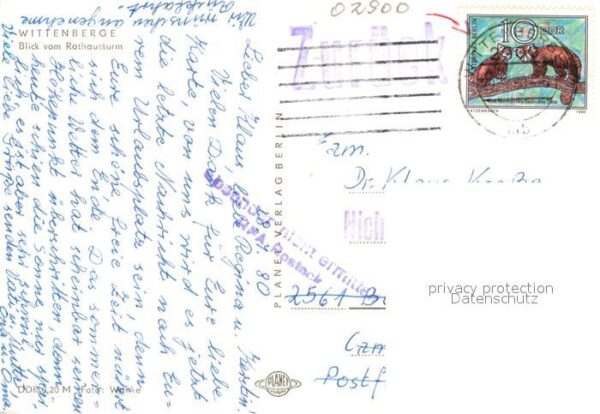 WITTENBERGE
Blick vom Rathausturm
02900
Zurück
10
DDR
1980
Wir wünschen angenehme
Rückfahrt.
28.7.80
Lieber Klaus, liebe Regina u. Kerstin!
Vielen Dank für Eure liebe
Karte, von uns wird es jetzt
die letzte Nachricht nach Eu-
rem Urlaubsplatz sein, denn
Eure schöne, freie Zeit nähert
sich dem Ende. Das sommer-
lich Wetter hat scheinbar seinen
Höhepunkt überschritten, denn
heute schien die Sonne nur
früh, es ist aber sehr schwül.
Viele liebe Grüße senden Vater, Mutter
Opa u. Oma
PLANET-VERLAG BERLIN
Fam.
Dr. Klaus
Absender nicht ermittelt
RPA Rostock
Nich
2561
Postf
privacy protection
Datenschutz
PLANET
DDR 0,20 M Foto: